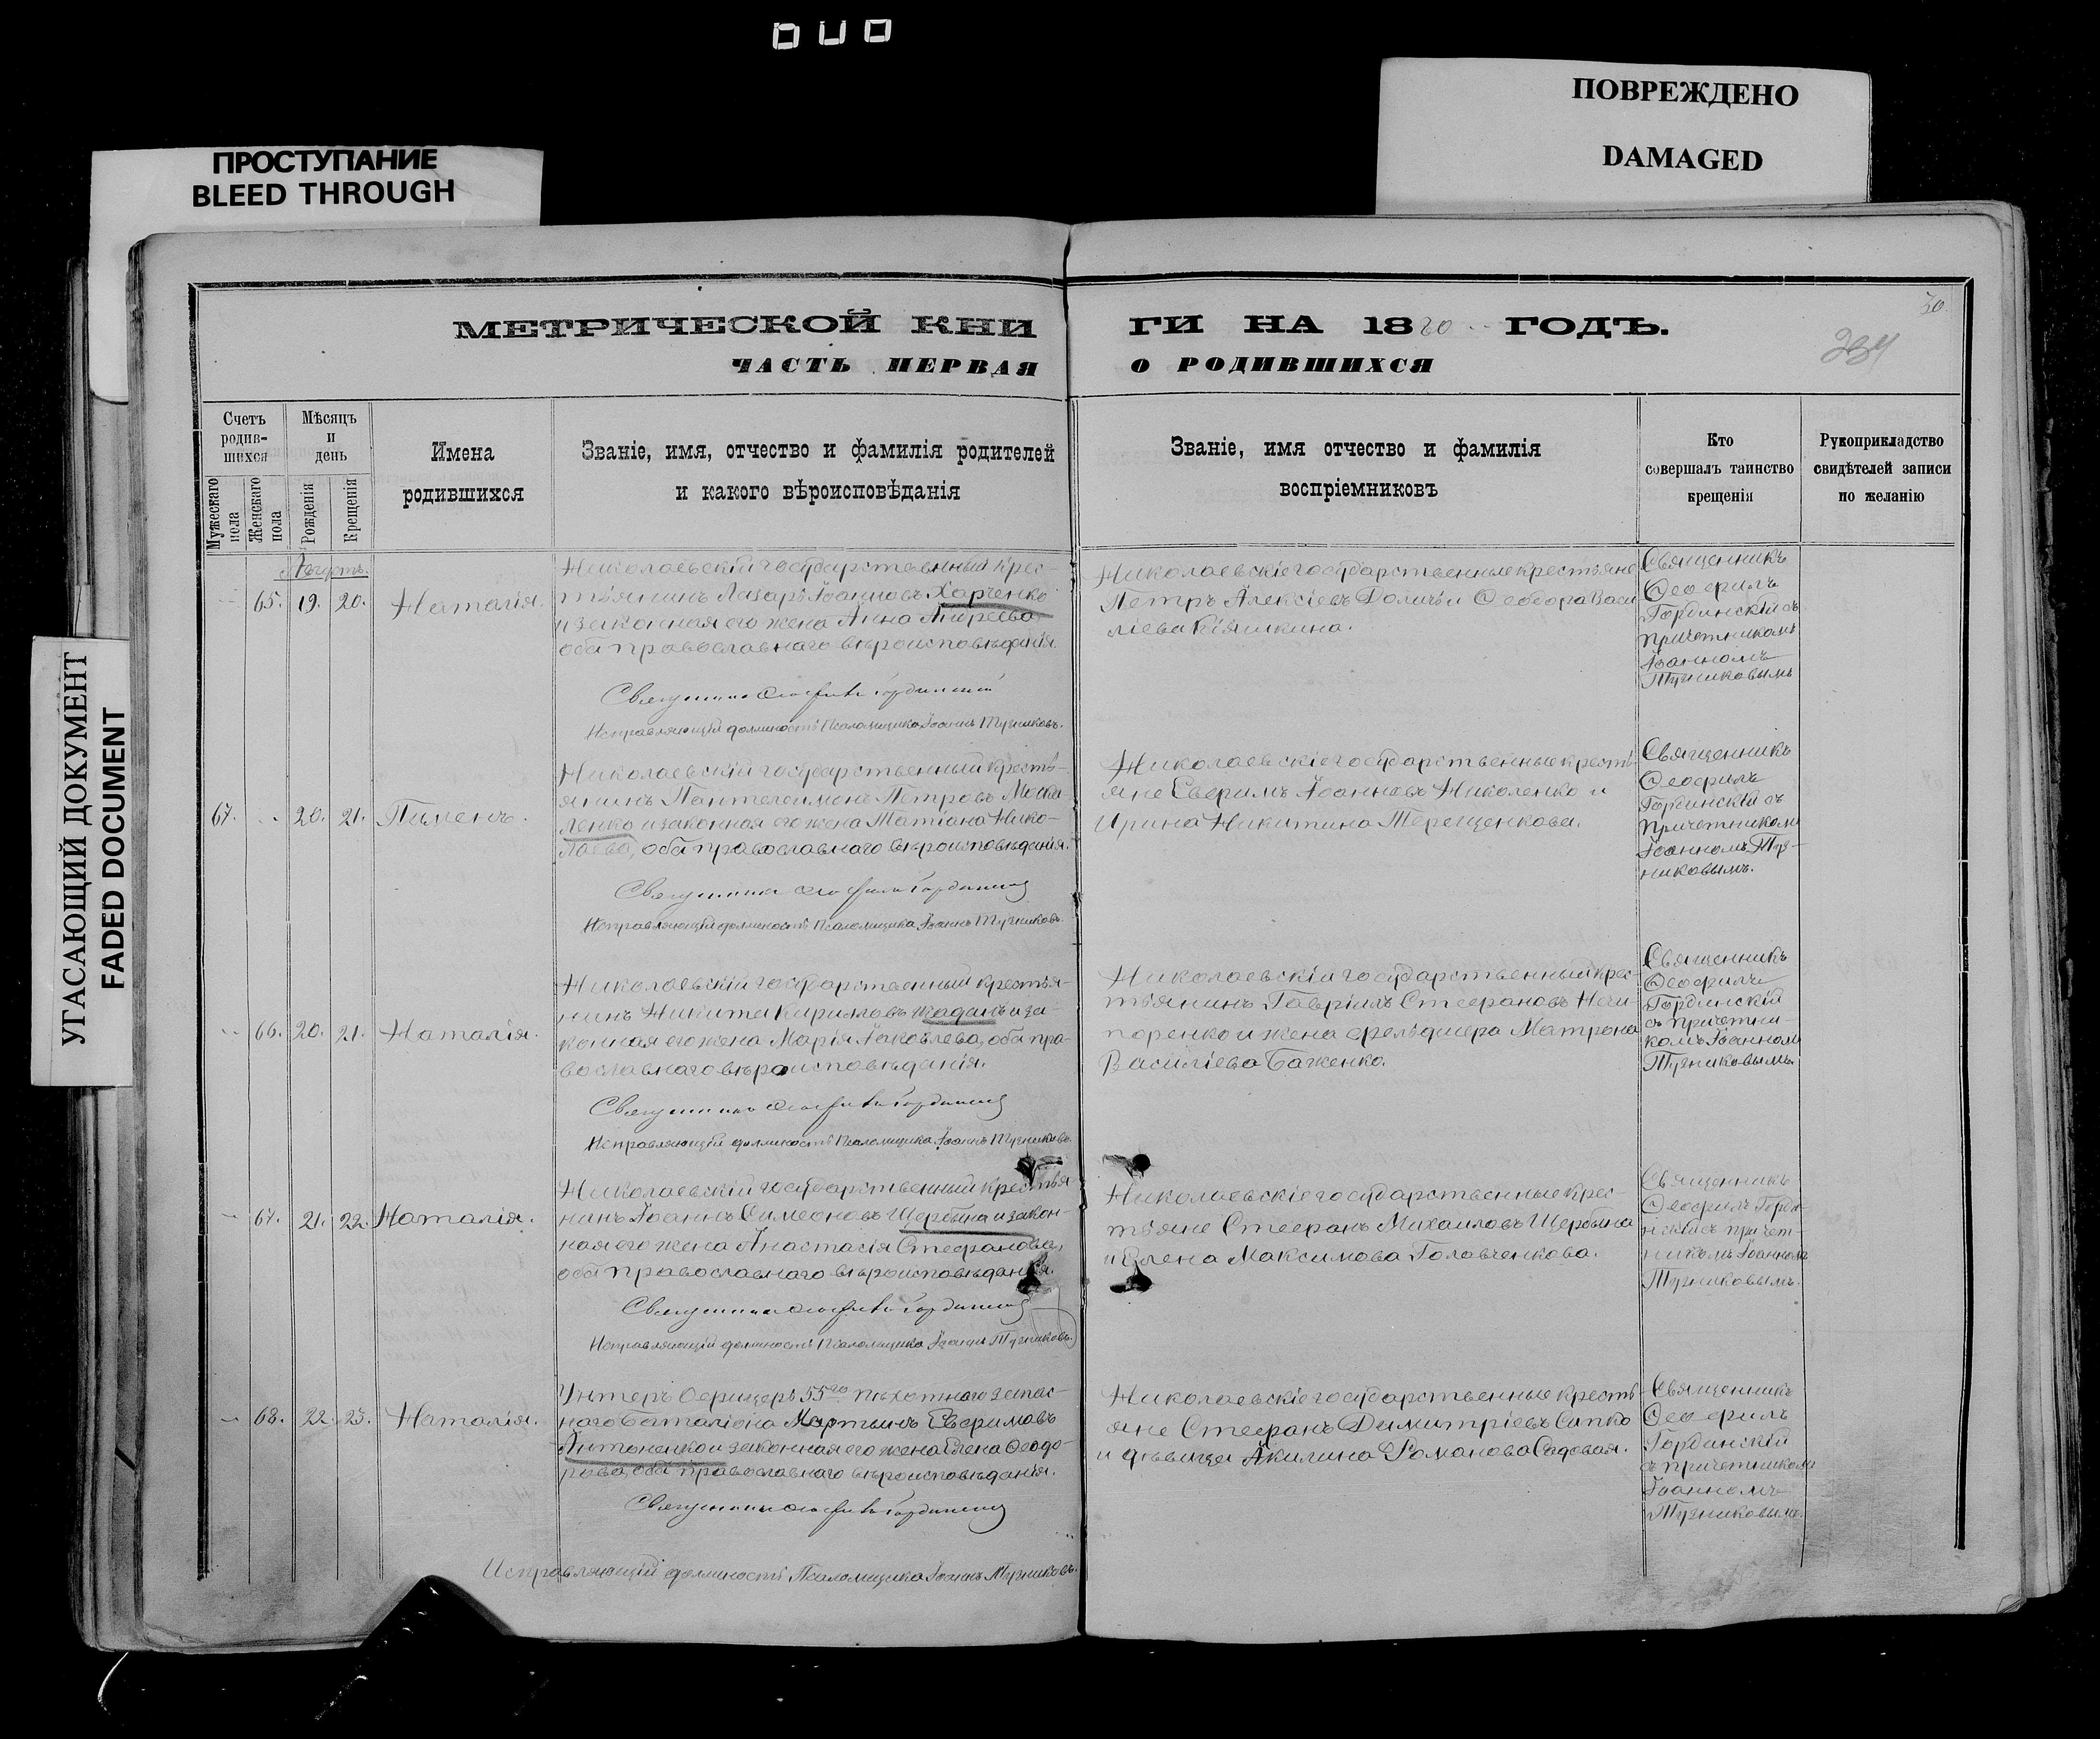 ПРОСТУПАНИЕ
BLEED THROUGH
ПОВРЕЖДЕНО
DAMAGED
УГАСАЮЩИЙ ДОКУМЕНТ
FADED DOCUMENT
30
234
МЕТРИЧЕСКОЙ КНИ
ГИ НА 1880 ГОДЪ.
ЧАСТЬ ПЕРВАЯ
О РОДИВШИХСЯ
Счетъ
родив-
шихся
Мужескаго
пола
Женскаго
пола
Мѣсяцъ
и
день
Рожденія
Крещенія
Имена
родившихся
Званіе, имя, отчество и фамилія родителей
и какого вѣроисповѣданія
Званіе, имя отчество и фамилія
воспріемниковъ
Кто
совершалъ таинство
крещенія
Рукоприкладство
свидѣтелей записи
по желанію
Августъ.
65. 19. 20. Наталія.
Николаевскій государственный крес-
тьянинъ Лазарь Іоанновъ Харченко
и законная его жена Анна Андреева,
оба православнаго вѣроисповѣданія.
Священникъ Ѳеофилъ Гординскій
Исправляющій должность Псаломщика Іоаннъ Тузниковъ.
Николаевскіе государственные крестьяне
Петръ Алексіевъ и Ѳеодора Васи
ліева Кіяшкина.
Священникъ
Ѳеофилъ
Гординскій съ
причетникомъ
Іоанномъ
Тузниковымъ
67. 20. 21. Пименъ.
Николаевскій государственный кресть-
янинъ Пантелеимонъ Петровъ Моска-
ленко и законная его жена Татіана Нико-
лаева, оба православнаго вѣроисповѣданія.
Священникъ Ѳеофилъ Гординскій
Исправляющій должность Псаломщика Іоаннъ Тузниковъ.
Николаевскіе государственные кресть
яне Евфимъ Іоанновъ Николенко и
Ирина Никитина Терещенкова.
Священникъ
Ѳеофилъ
Гординскій съ
Причетникомъ
Іоанномъ Туз-
никовымъ.
66. 20. 21. Наталія.
Николаевскій государственный крестья-
нинъ Никита Кирилловъ Жаданъ и за-
конная его жена Марія Іаковлева, оба пра-
вославнаго вѣроисповѣданія.
Священникъ Ѳеофилъ Гординскій
Исправляющій должность Псаломщика Іоаннъ Тузниковъ.
Николаевскій государственный крес-
тьянинъ Гавріилъ Стефановъ Нечи-
поренко и жена фельдшера Матрона
Василіева Баженко.
Священникъ
Ѳеофилъ
Гординскій
съ причетни-
комъ Іоанномъ
Тузниковымъ.
67. 21. 22. Наталія.
Николаевскій государственный крестья
нинъ Іоаннъ Симеоновъ Щербина и закон-
ная его жена Анастасія Стефанова,
оба православнаго вѣроисповѣданія.
Священникъ Ѳеофилъ Гординскій
Исправляющій должность Псаломщика Іоаннъ Тузниковъ.
Николаевскіе государственные крес-
тьяне Стефанъ Михаиловъ Щербина
и Елена Максимова Голавченкова.
Священникъ
Ѳеофилъ Горди-
нскій съ причет-
никомъ Іоанномъ
Тузниковымъ.
68. 22. 23. Наталія.
Унтеръ Офицеръ 55го пѣхотнаго запас-
наго баталіона Мартынъ Евфимовъ
Антоненко и законная его жена Елена Ѳеодо-
рова, оба православнаго вѣроисповѣданія.
Священникъ Ѳеофилъ Гординскій
Исправляющій должность Псаломщика Іоаннъ Тузниковъ.
Николаевскіе государственные кресть
яне Стефанъ Димитріевъ Сапко
и дѣвица Акилина Романова Садовая.
Священникъ
Ѳеофилъ
Гординскій
съ причетникомъ
Іоанномъ
Тузниковымъ.